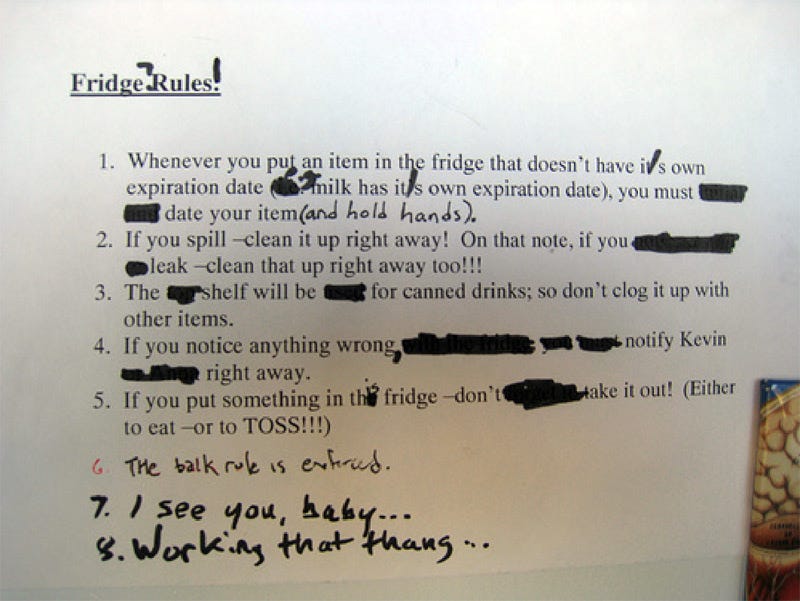 Fridge? Rules!
1. Whenever you put an item in the fridge that doesn't have it/s own
expiration date ( milk has it/s own expiration date), you must
date your item (and hold hands).
2. If you spill –clean it up right away! On that note, if you
leak –clean that up right away too!!!
3. The shelf will be for canned drinks; so don't clog it up with
other items.
4. If you notice anything wrong, notify Kevin
right away.
5. If you put something in this fridge –don't take it out! (Either
to eat –or to TOSS!!!)
6. THE balk rule is enforced.
7. I see you, baby...
8. Working that thang...